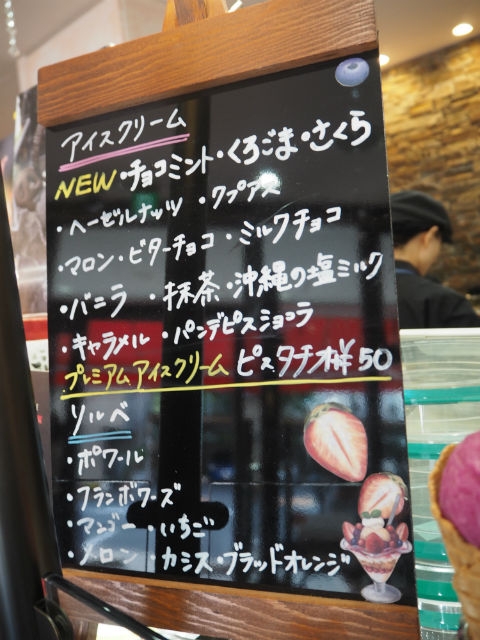 アイスクリーム
NEW・チョコミント・くろごま・さくら
・ヘーゼルナッツ ・クプアス
・マロン・ビターチョコ・ミルクチョコ
・バニラ ・抹茶・沖縄の塩ミルク
・キャラメル・パンデピスショコラ
プレミアムアイスクリーム ピスタチオ ¥50
ソルベ
・ポワール
・フランボワーズ
・マンゴー・いちご
・メロン・カシス・ブラッドオレンジ